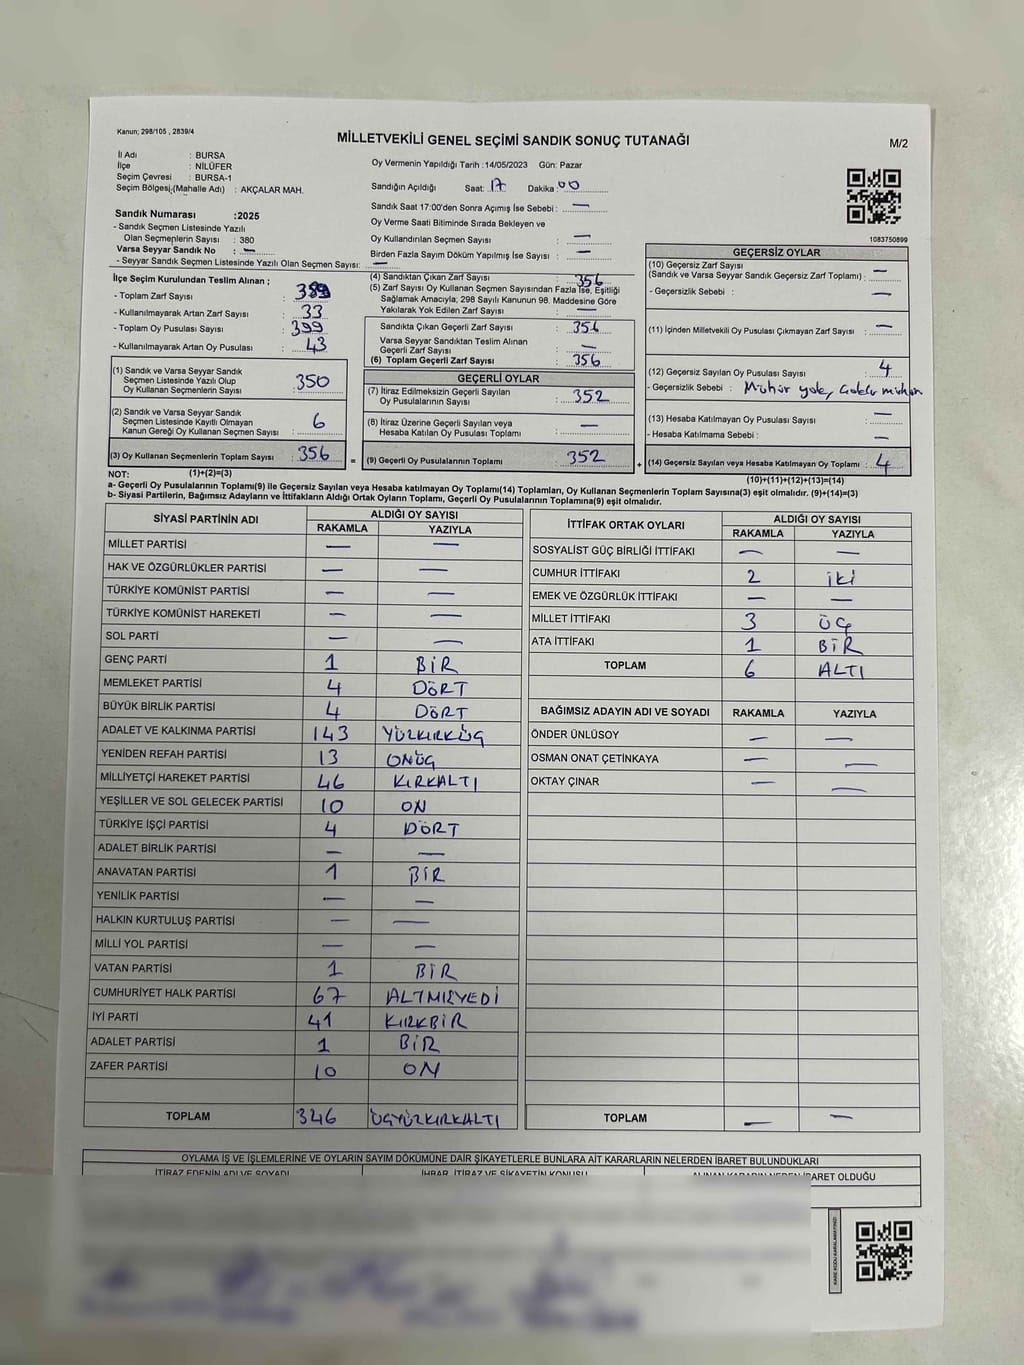 Kanun; 298/105 , 2839/4
MİLLETVEKİLİ GENEL SEÇİMİ SANDIK SONUÇ TUTANAĞI
M/2
İl Adı : BURSA
İlçe : NİLÜFER
Seçim Çevresi : BURSA-1
Seçim Bölgesi,(Mahalle Adı) : AKÇALAR MAH.
Oy Vermenin Yapıldığı Tarih :14/05/2023 Gün: Pazar
Sandığın Açıldığı Saat: 17 Dakika: 00
Sandık Saat 17:00'den Sonra Açımış İse Sebebi : —
Oy Verme Saati Bitiminde Sırada Bekleyen ve
Oy Kullandırılan Seçmen Sayısı : —
Birden Fazla Sayım Döküm Yapılmış İse Sayısı : —
1083750899
Sandık Numarası :2025
- Sandık Seçmen Listesinde Yazılı
Olan Seçmenlerin Sayısı : 380
Varsa Seyyar Sandık No : —
- Seyyar Sandık Seçmen Listesinde Yazılı Olan Seçmen Sayısı: —
İlçe Seçim Kurulundan Teslim Alınan ;
- Toplam Zarf Sayısı : 389
- Kullanılmayarak Artan Zarf Sayısı : 33
- Toplam Oy Pusulası Sayısı : 399
- Kullanılmayarak Artan Oy Pusulası : 43
(1) Sandık ve Varsa Seyyar Sandık
Seçmen Listesinde Yazılı Olup
Oy Kullanan Seçmenlerin Sayısı : 350
(2) Sandık ve Varsa Seyyar Sandık
Seçmen Listesinde Kayıtlı Olmayan
Kanun Gereği Oy Kullanan Seçmen Sayısı : 6
(3) Oy Kullanan Seçmenlerin Toplam Sayısı : 356
(4) Sandıktan Çıkan Zarf Sayısı : 356
(5) Zarf Sayısı Oy Kullanan Seçmen Sayısından Fazla İse, Eşitliği
Sağlamak Amacıyla; 298 Sayılı Kanunun 98. Maddesine Göre
Yakılarak Yok Edilen Zarf Sayısı : —
Sandıkta Çıkan Geçerli Zarf Sayısı : 356
Varsa Seyyar Sandıktan Teslim Alınan
Geçerli Zarf Sayısı : —
(6) Toplam Geçerli Zarf Sayısı : 356
GEÇERLİ OYLAR
(7) İtiraz Edilmeksizin Geçerli Sayılan
Oy Pusulalarının Sayısı : 352
(8) İtiraz Üzerine Geçerli Sayılan veya
Hesaba Katılan Oy Pusulası Toplamı : —
= (9) Geçerli Oy Pusulalarının Toplamı : 352
GEÇERSİZ OYLAR
(10) Geçersiz Zarf Sayısı
(Sandık ve Varsa Seyyar Sandık Geçersiz Zarf Toplamı) : —
- Geçersizlik Sebebi : —
(11) İçinden Milletvekili Oy Pusulası Çıkmayan Zarf Sayısı : —
(12) Geçersiz Sayılan Oy Pusulası Sayısı : 4
- Geçersizlik Sebebi : Mühür yok,
(13) Hesaba Katılmayan Oy Pusulası Sayısı : —
- Hesaba Katılmama Sebebi : —
+ (14) Geçersiz Sayılan veya Hesaba Katılmayan Oy Toplamı : 4
NOT: (1)+(2)=(3)
(10)+(11)+(12)+(13)=(14)
a- Geçerli Oy Pusulalarının Toplamı(9) ile Geçersiz Sayılan veya Hesaba Katılmayan Oy Toplamı(14) Toplamları, Oy Kullanan Seçmenlerin Toplam Sayısına(3) eşit olmalıdır. (9)+(14)=(3)
b- Siyasi Partilerin, Bağımsız Adayların ve İttifakların Aldığı Ortak Oyların Toplamı, Geçerli Oy Pusulalarının Toplamına(9) eşit olmalıdır.
SİYASİ PARTİNİN ADI ALDIĞI OY SAYISI
RAKAMLA YAZIYLA
MİLLET PARTİSİ — —
HAK VE ÖZGÜRLÜKLER PARTİSİ — —
TÜRKİYE KOMÜNİST PARTİSİ — —
TÜRKİYE KOMÜNİST HAREKETİ — —
SOL PARTİ — —
GENÇ PARTİ 1 BİR
MEMLEKET PARTİSİ 4 DÖRT
BÜYÜK BİRLİK PARTİSİ 4 DÖRT
ADALET VE KALKINMA PARTİSİ 143 YÜZKIRKÜÇ
YENİDEN REFAH PARTİSİ 13 ONÜÇ
MİLLİYETÇİ HAREKET PARTİSİ 46 KIRKALTI
YEŞİLLER VE SOL GELECEK PARTİSİ 10 ON
TÜRKİYE İŞÇİ PARTİSİ 4 DÖRT
ADALET BİRLİK PARTİSİ — —
ANAVATAN PARTİSİ 1 BİR
YENİLİK PARTİSİ — —
HALKIN KURTULUŞ PARTİSİ — —
MİLLİ YOL PARTİSİ — —
VATAN PARTİSİ 1 BİR
CUMHURİYET HALK PARTİSİ 67 ALTMIŞYEDİ
İYİ PARTİ 41 KIRKBİR
ADALET PARTİSİ 1 BİR
ZAFER PARTİSİ 10 ON
TOPLAM 346 ÜÇYÜZKIRKALTI
İTTİFAK ORTAK OYLARI ALDIĞI OY SAYISI
RAKAMLA YAZIYLA
SOSYALİST GÜÇ BİRLİĞİ İTTİFAKI — —
CUMHUR İTTİFAKI 2 iki
EMEK VE ÖZGÜRLÜK İTTİFAKI — —
MİLLET İTTİFAKI 3 ÜÇ
ATA İTTİFAKI 1 BİR
TOPLAM 6 ALTI
BAĞIMSIZ ADAYIN ADI VE SOYADI RAKAMLA YAZIYLA
ÖNDER ÜNLÜSOY — —
OSMAN ONAT ÇETİNKAYA — —
OKTAY ÇINAR — —
TOPLAM — —
OYLAMA İŞ VE İŞLEMLERİNE VE OYLARIN SAYIM DÖKÜMÜNE DAİR ŞİKAYETLERLE BUNLARA AİT KARARLARIN NELERDEN İBARET BULUNDUKLARI
İTİRAZ EDENİN ADI VE SOYADI İHBAR, İTİRAZ VE ŞİKAYETİN KONUSU ALINAN KARARIN NEDEN İBARET OLDUĞU
KARE KODU KARALAMAYINIZ!